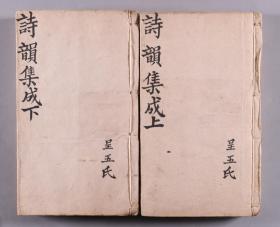 詩韻集成上
呈五氏
詩韻集成下
呈五氏